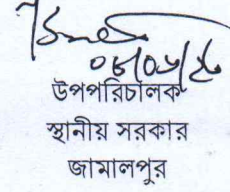 উপপরিচালক
স্থানীয় সরকার
জামালপুর